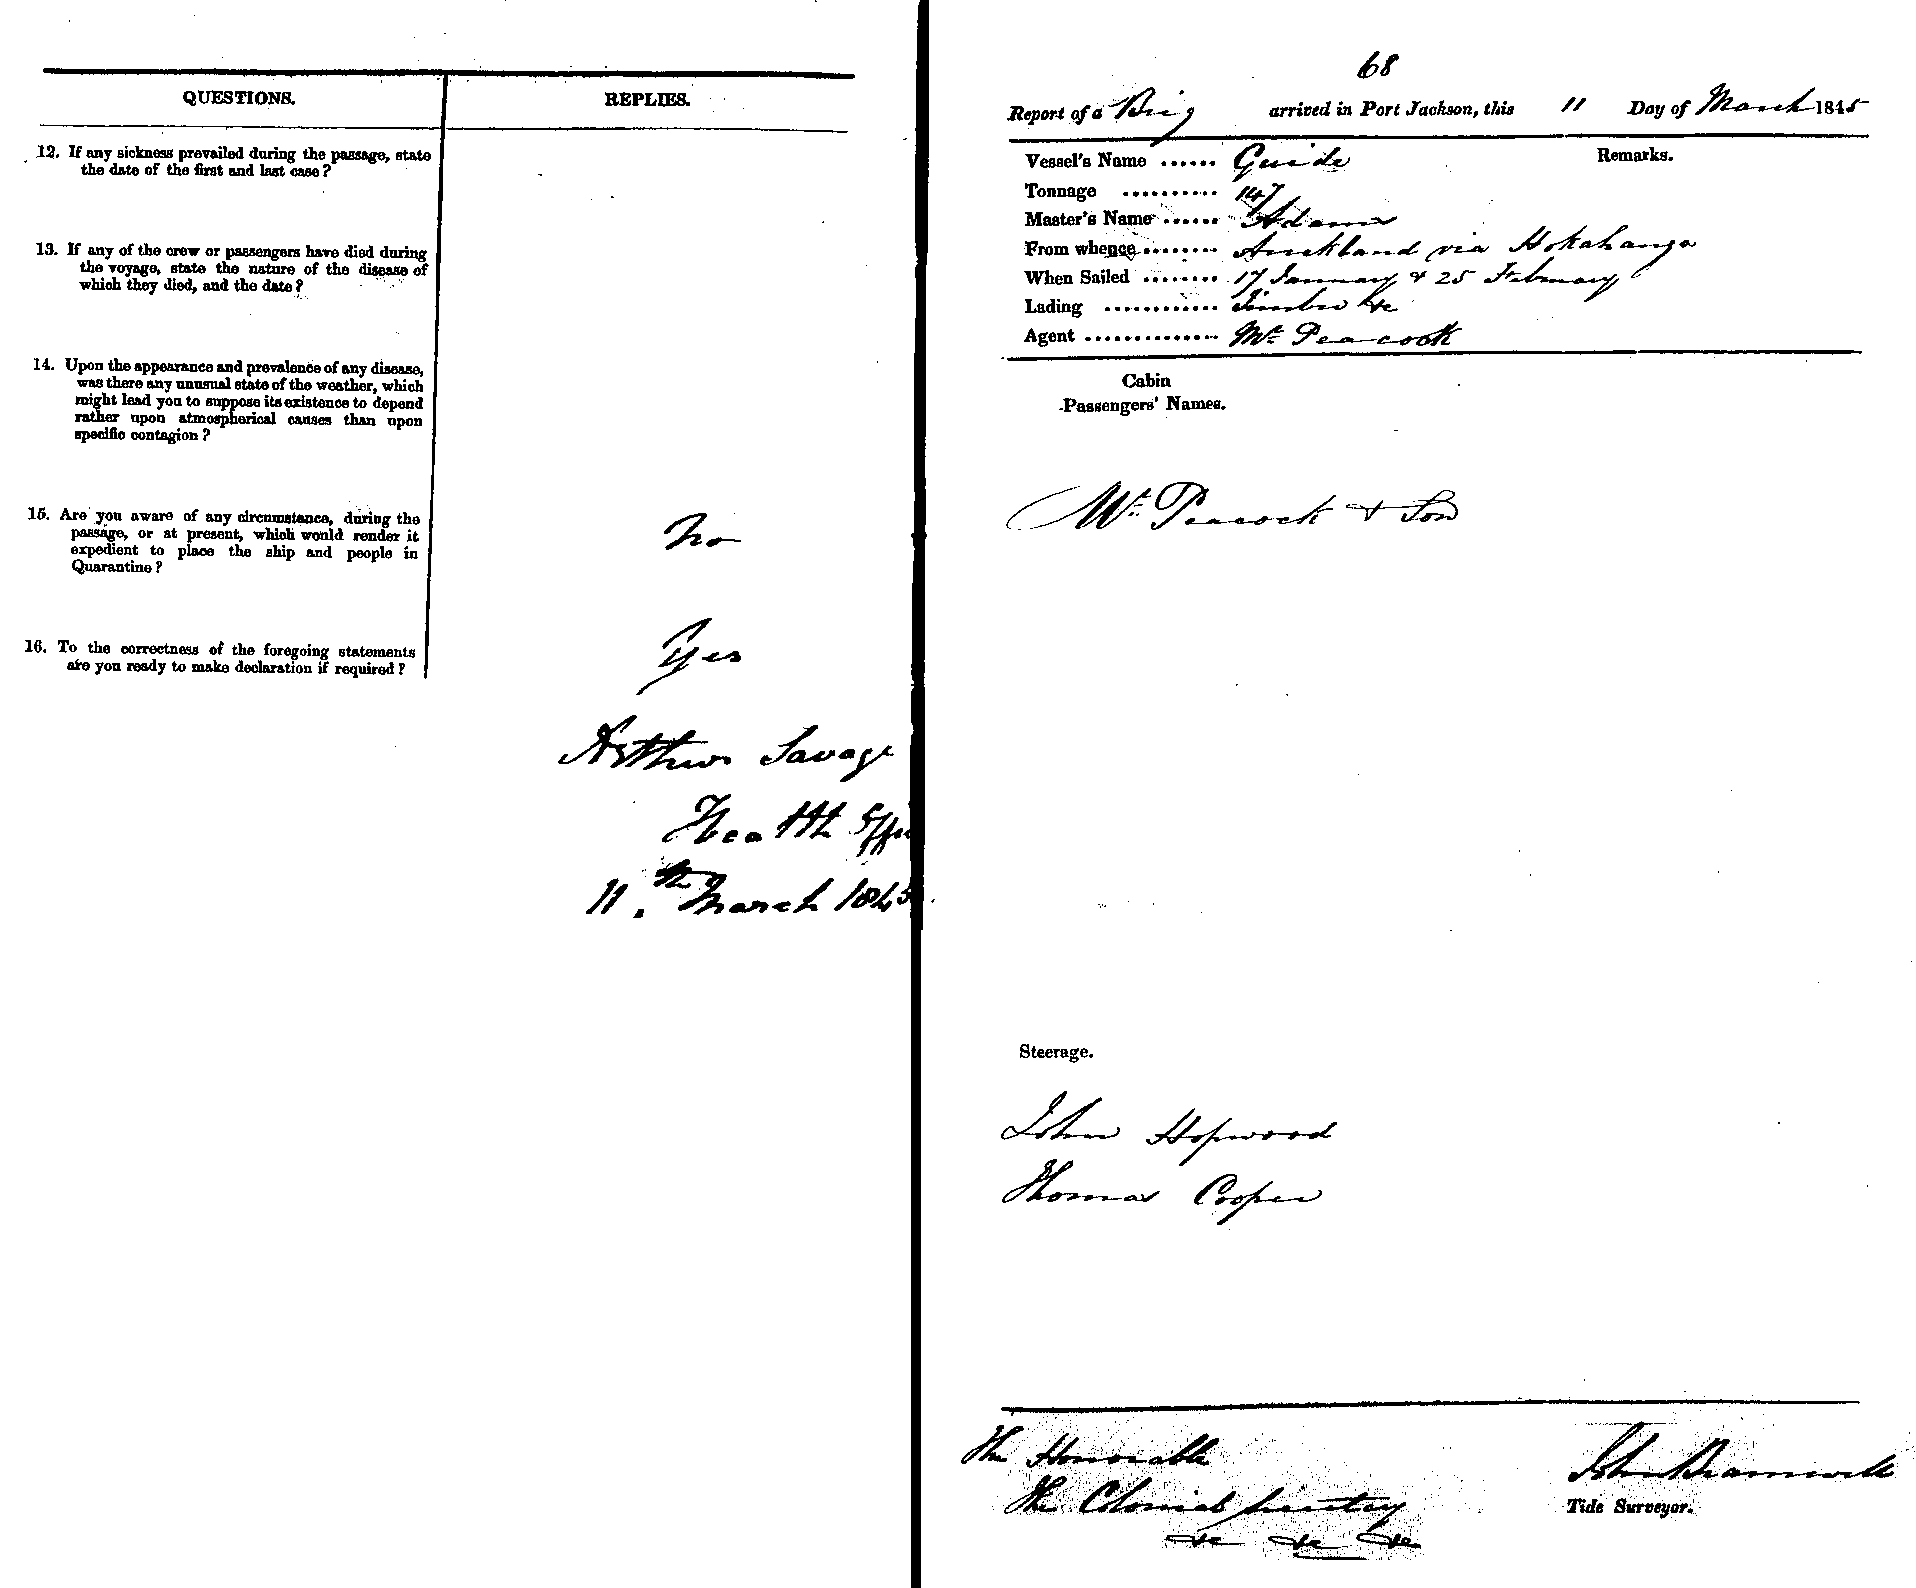 QUESTIONS.
REPLIES.
12. If any sickness prevailed during the passage, state
the date of the first and last case?
13. If any of the crew or passengers have died during
the voyage, state the nature of the disease of
which they died, and the date?
14. Upon the appearance and prevalence of any disease,
was there any unusual state of the weather, which
might lead you to suppose its existence to depend
rather upon atmospherical causes than upon
specific contagion?
15. Are you aware of any circumstance, during the
passage, or at present, which would render it
expedient to place the ship and people in
Quarantine?
No
16. To the correctness of the foregoing statements
are you ready to make declaration if required?
Yes
Arthur Savage
Health Offi
11.th March 1845
68
Report of a Brig arrived in Port Jackson, this 11 Day of March 1845
Vessel's Name ...... Guide
Remarks.
Tonnage .......... 147
Master's Name ...... Adams
From whence ........ Auckland via Hokahanga
When Sailed ........ 17 January & 25 February
Lading ............ Timber &c
Agent .............. Mr Peacock
Cabin
Passengers' Names.
Mr Peacock & Son
Steerage.
John Hopwood
Thomas Cooper
The Honorable
The Colonial Secretary
&c &c &c
John Bramwell
Tide Surveyor.